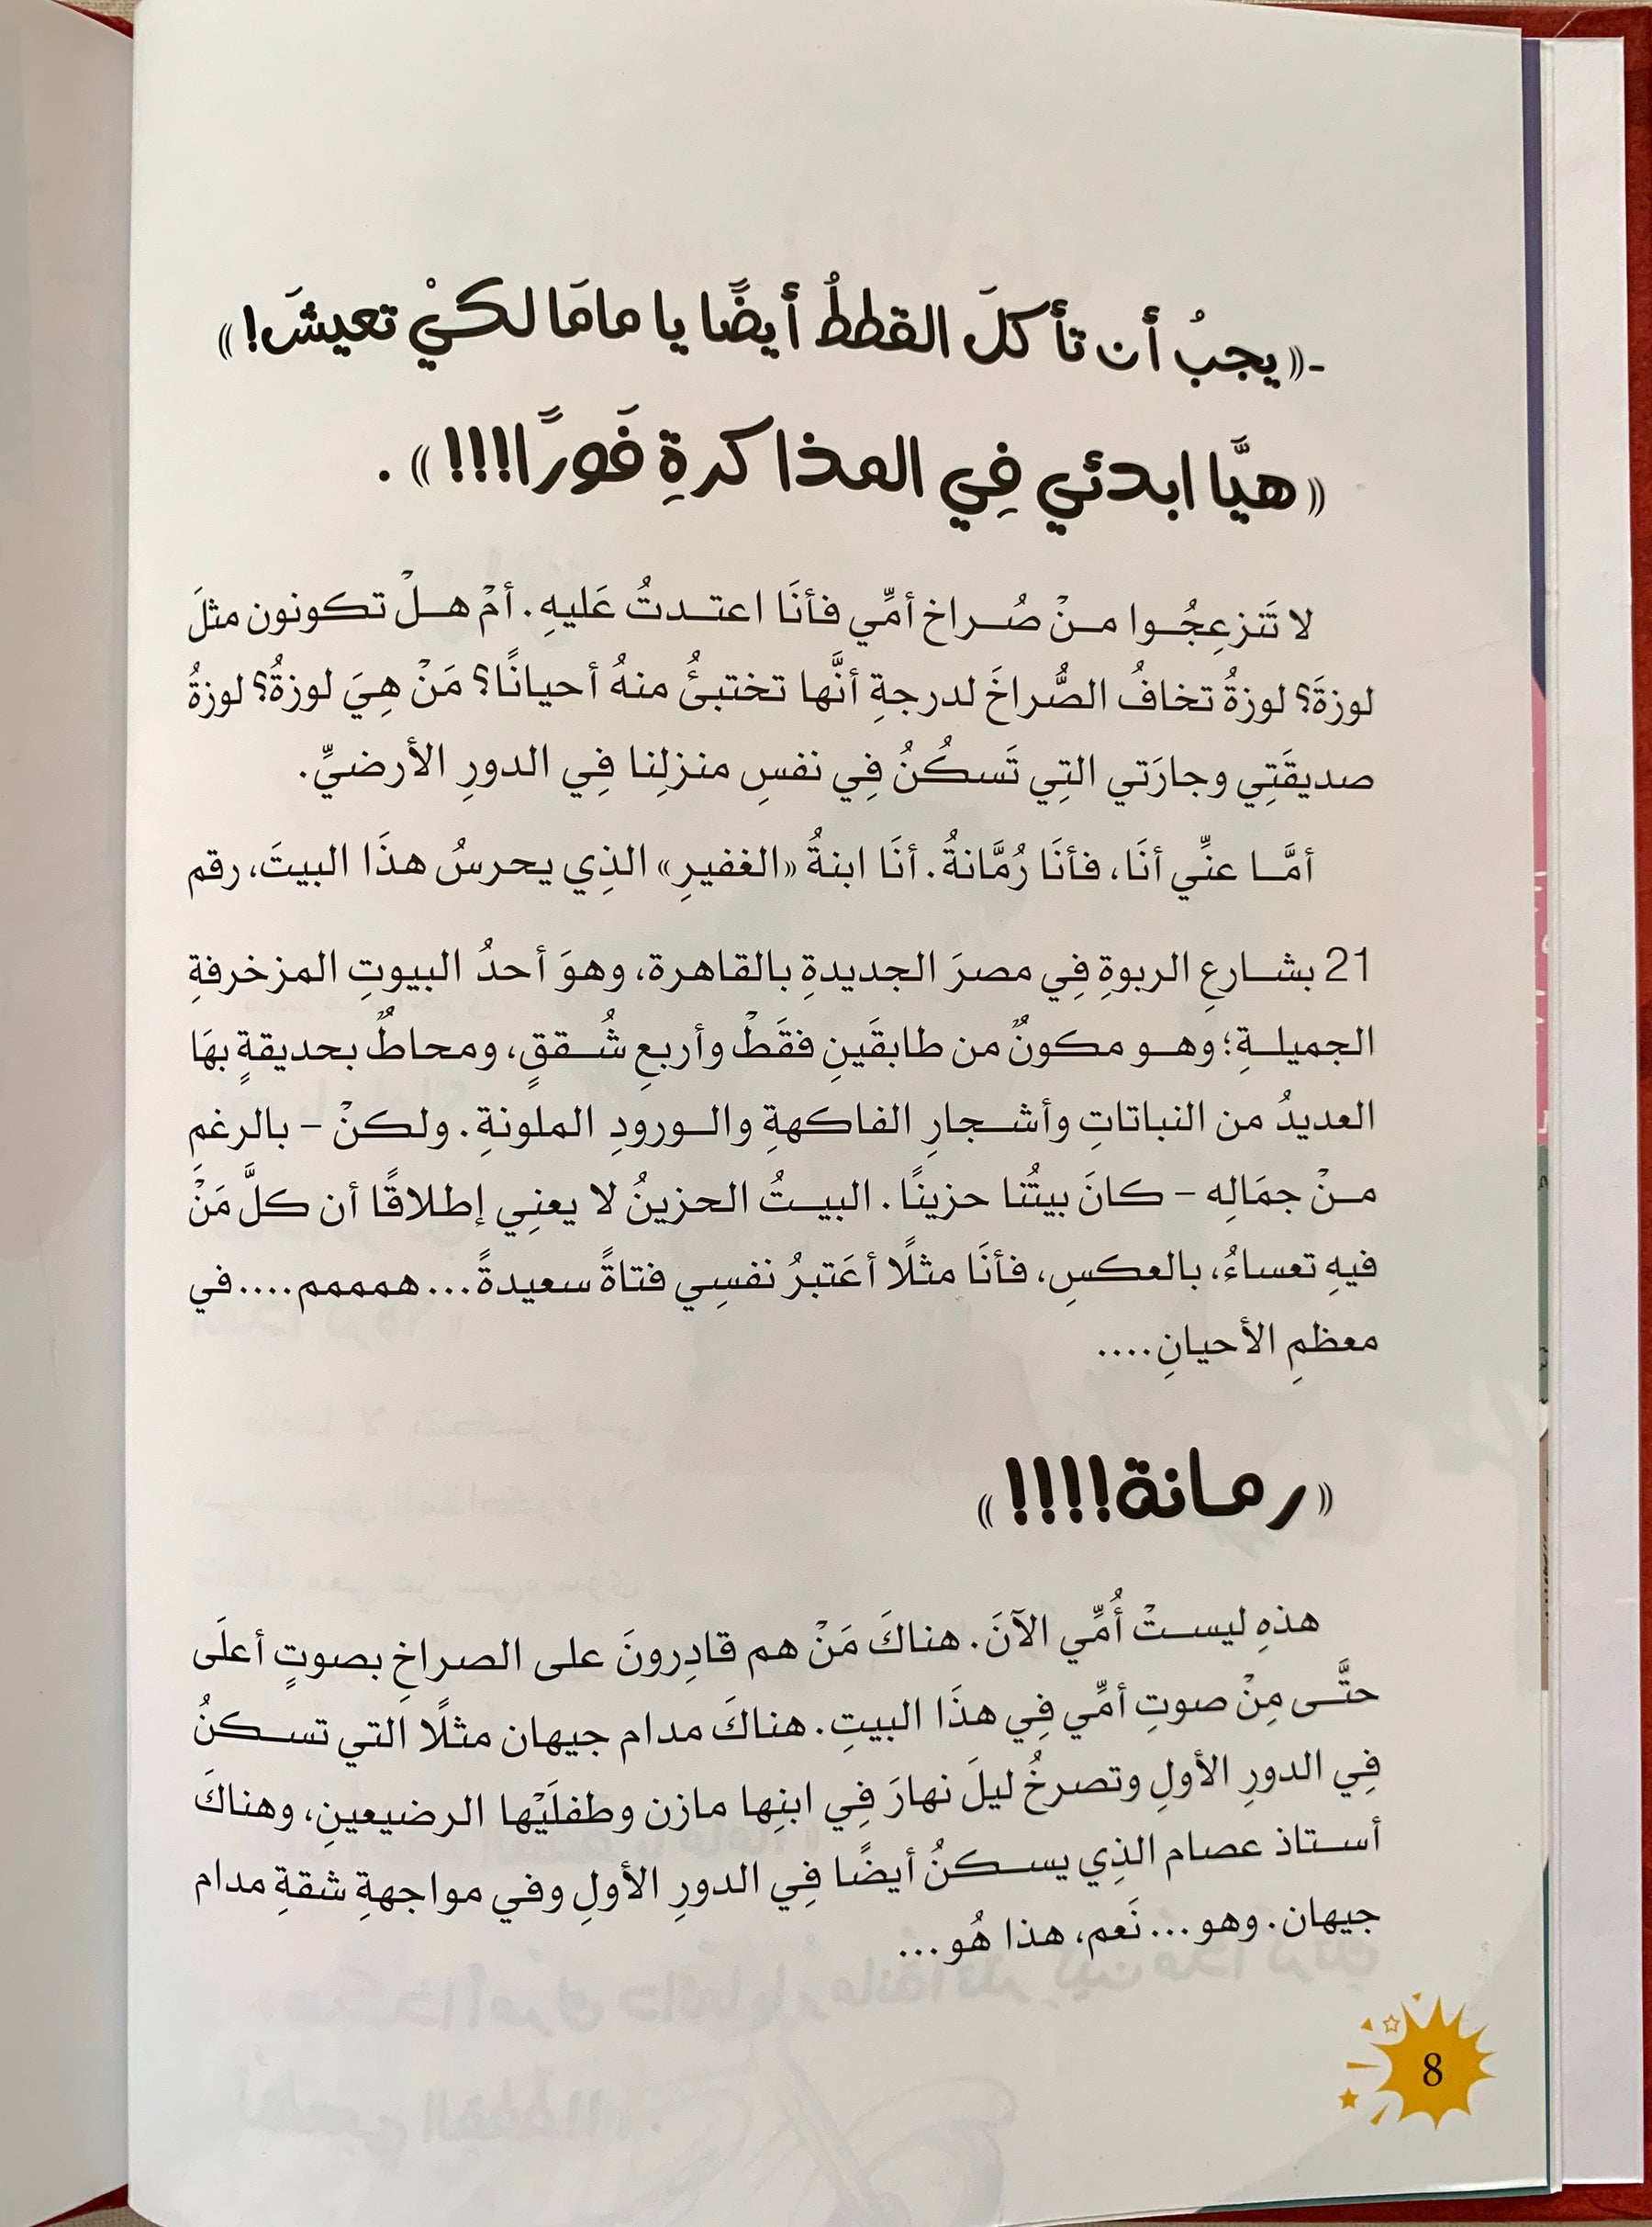 -«يجبُ أن تأكلَ القططُ أيضًا يا مامَا لكيْ تعيشَ!»
«هيَّا ابدئي فِي المذاكرةِ فَورًا!!!!».
لا تَنزعِجُوا منْ صُراخ أمِّي فأنَا اعتدتُ عَليهِ. أمْ هلْ تكونون مثلَ
لوزةَ؟ لوزةُ تخافُ الصُّراخَ لدرجةِ أنَّها تختبئُ منهُ أحيانًا؟ مَنْ هِيَ لوزةُ؟ لوزةُ
صديقَتِي وجارَتي التِي تَسكُنُ فِي نفسِ منزلِنا فِي الدورِ الأرضيِّ.
أمَّا عنِّي أنَا، فأنَا رُمَّانةُ. أنَا ابنةُ «الغفيرِ» الذِي يحرسُ هذَا البيتَ، رقم
21 بشارعِ الربوةِ فِي مصرَ الجديدةِ بالقاهرة، وهوَ أحدُ البيوتِ المزخرفةِ
الجميلةِ؛ وهو مكونٌ من طابقَينِ فقَطْ وأربعِ شُققٍ، ومحاطٌ بحديقةٍ بهَا
العديدُ من النباتاتِ وأشجارِ الفاكهةِ والورودِ الملونةِ. ولكنْ - بالرغمِ
منْ جمَالِه - كانَ بيتُنا حزينًا. البيتُ الحزينُ لا يعنِي إطلاقًا أن كلَّ مَنْ
فيهِ تعساءُ، بالعكسِ، فأنَا مثلًا أعَتبرُ نفسِي فتاةً سعيدةً... همممم.... في
معظمِ الأحيانِ....
«رمانة!!!!»
هذهِ ليستْ أُمِّي الآنَ. هناكَ مَنْ هم قادِرونَ على الصراخِ بصوتٍ أعلَى
حتَّى مِنْ صوتِ أمِّي فِي هذَا البيتِ. هناكَ مدام جيهان مثلًا التي تسكنُ
فِي الدورِ الأولِ وتصرخُ ليلَ نهارَ فِي ابنِها مازن وطفلَيْها الرضيعينِ، وهناكَ
أستاذ عصام الذِي يسكنُ أيضًا فِي الدورِ الأولِ وفي مواجهةِ شقةِ مدام
جيهان. وهو... نَعم، هذا هُو...
8